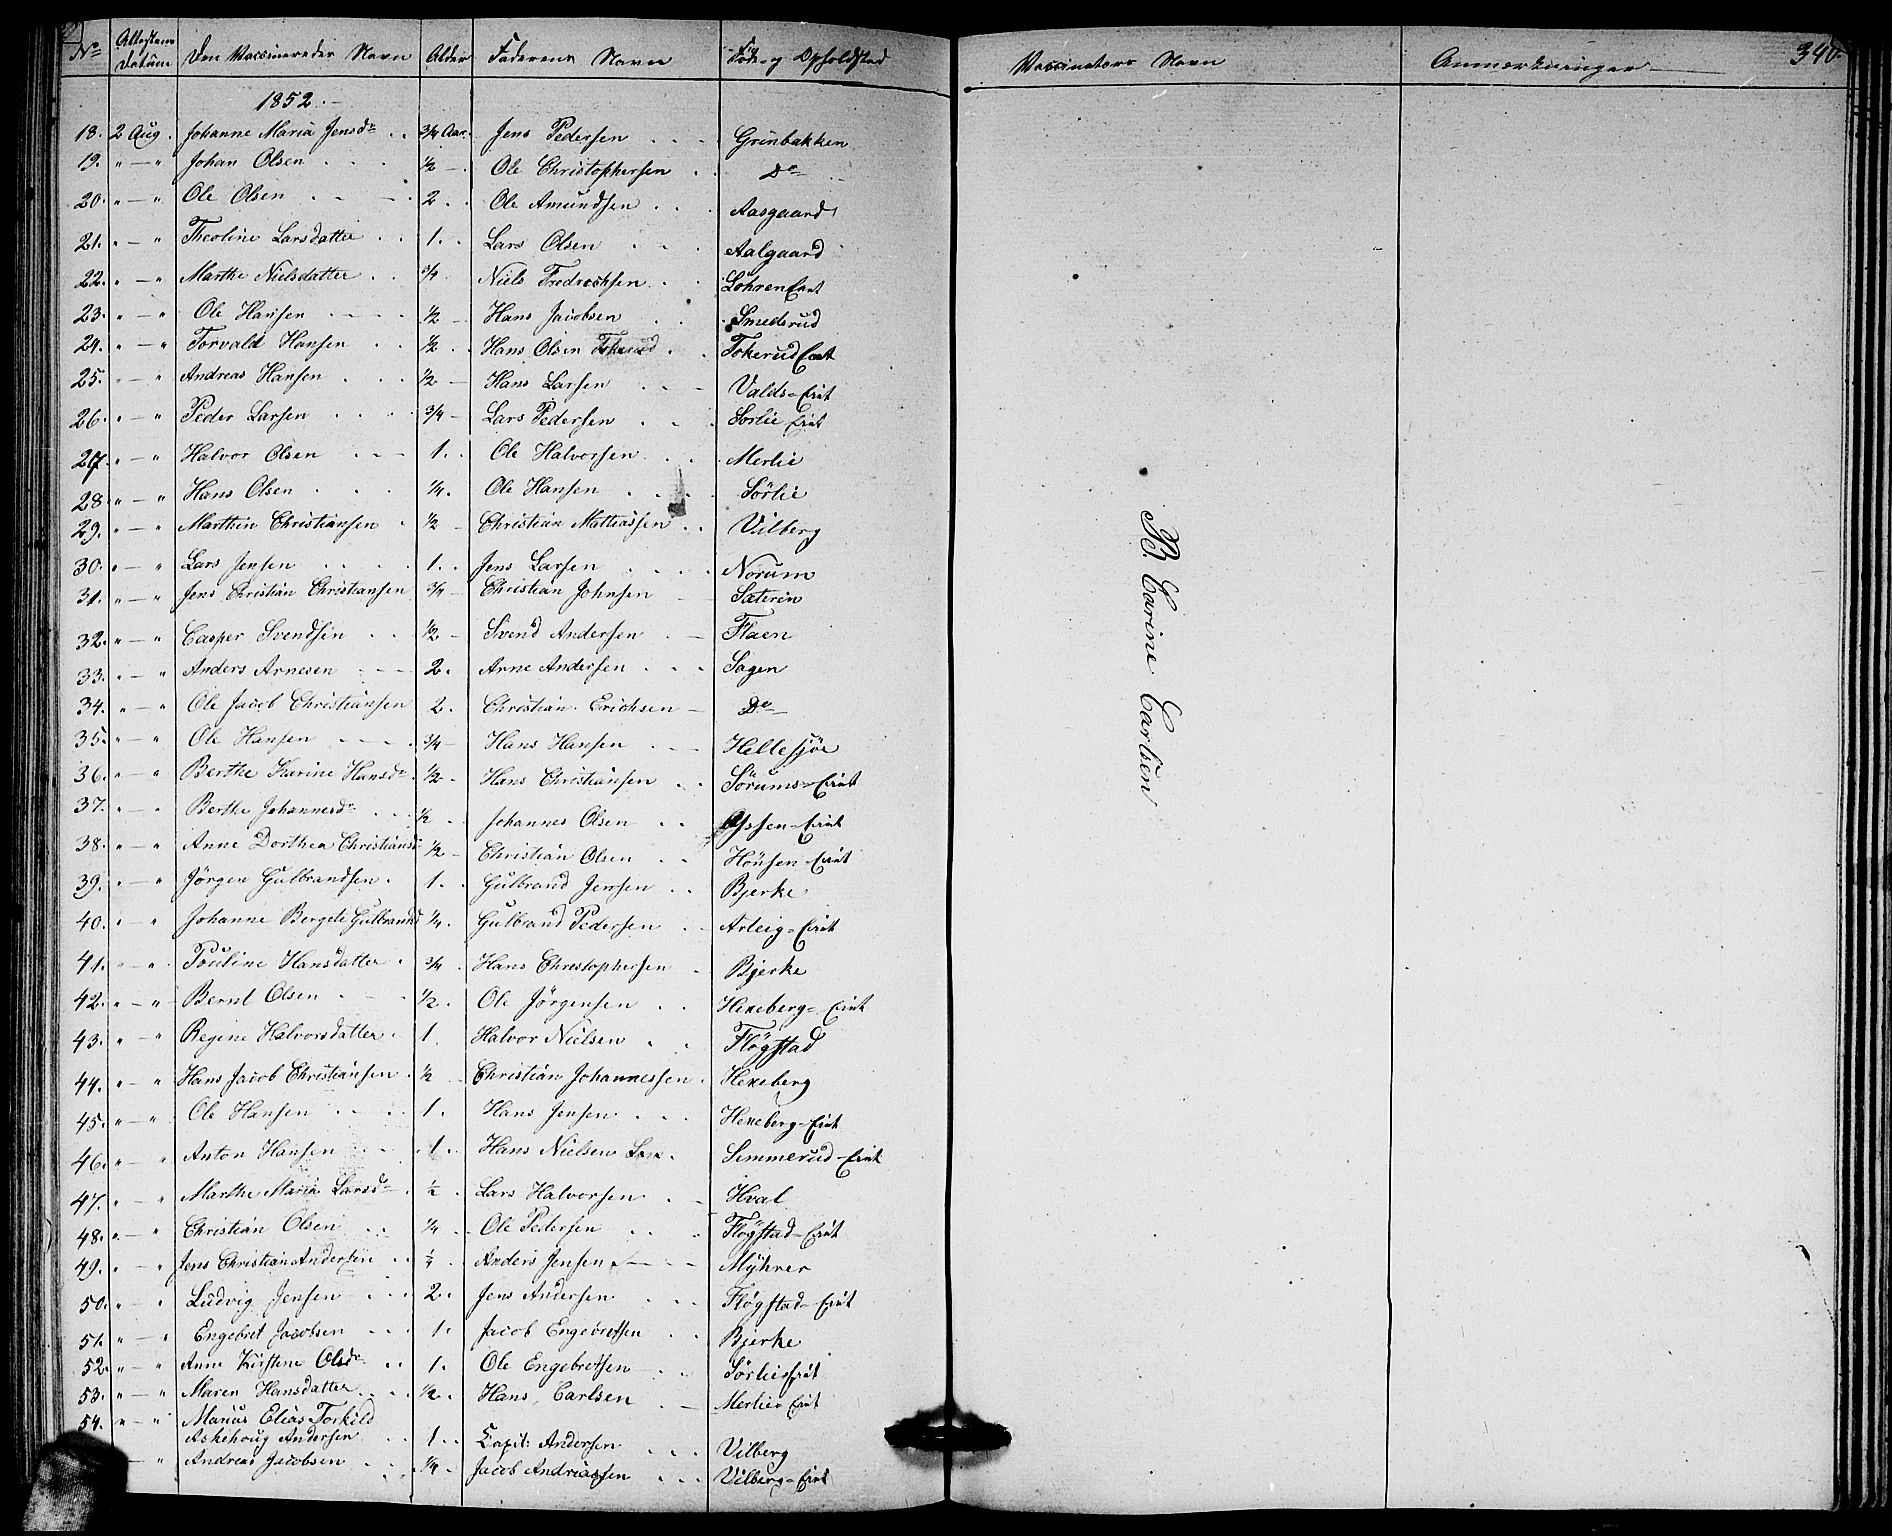 340.
No Attestens Datum Den Vaccineredes Navn Alder Faderens Navn Føde- og Opholdsted Vaccinators Navn Anmærkninger
1852.
18. 2 Aug. Johanne Maria Jensdr 3/4 Aar. Jens Pedersen Grinbakken
19. " — " Johan Olsen 1/2 — Ole Christophersen Do
20. " — " Ole Olsen 2. Ole Amundsen Aasgaard
21. " — " Theoline Larsdatter 1. Lars Olsen Aalgaard
22. " — " Marthe Nielsdatter 3/4 Niels Fredrechsen Løhren Eiet
23. " — " Ole Hansen 1/2 — Hans Jacobsen Smederud
24. " — " Torvald Hansen 1/2 Hans Olsen Tokerud Eiet
25. " — " Andreas Hansen 1/2 — Hans Larsen Valds-Eiet
26. " — " Peder Larsen 3/4 — Lars Pedersen Sørlie Eiet
27. " — " Halvor Olsen 1. Ole Halvorsen Merlie
28. " — " Hans Olsen 1/4. Ole Hansen Sørlie
29. " — " Marthin Christiansen 1/2 — Christian Mathiassen Vilberg
30. " — " Lars Jensen 1. Jens Larsen Norum
31. " — " Jens Christian Christiansen 3/4 — Christian Johnsen Sæteren
32. " — " Casper Svendsen 1/2 — Svend Andersen Flaen
33. " — " Anders Arnesen 2. Arne Andersen Sagen
34. " — " Ole Jacob Christiansen 2. Christian Erichsen Do
35. " — " Ole Hansen 3/4 — Hans Hansen Hellesjøe
36. " — " Berthe Karine Hansdr 1/2 — Hans Christiansen Sørums-Eiet
37. " — " Berthe Johannesdr 1/2 Johannes Olsen Eiet
38. " — " Anne Dorthea Christiansd 1/2 — Christian Olsen Hønsen-Eiet
39. " — " Jørgen Gulbrandsen 1. Gulbrand Jensen Bjerke
40. " — " Johanne Bergete Gulbrandsd 1/4. Gulbrand Pedersen Arteig-Eiet
41. " — " Pouline Hansdatter 3/4 Hans Christophersen Bjerke
42. " — " Bernt Olsen 1/2. Ole Jørgensen Hexeberg-Eiet
43. " — " Regine Halvorsdatter 1. Halvor Nielsen Fløgstad
44. " — " Hans Jacob Christiansen 1/2 Christian Johannessen Hexeberg
45. " — " Ole Hansen 1. Hans Jensen Hexeberg-Eiet
46. " — " Anton Hansen 1. Hans Nielsen Semmerud-Eiet
47. " — " Marthe Maria Larsdr 1/2 Lars Halvorsen Hval
48. " — " Christian Olsen 1/4 Ole Pedersen Fløgstad-Eiet
49. " — " Jens Christian Andersen Anders Jensen Myhrer
50. " — " Ludvig Jensen 2. Jens Andersen Fløgstad-Eiet
51. " — " Engebret Jacobsen 1. Jacob Engebretsen Bjerke
52. " — " Anne Kirstine Olsdr 1. Ole Engebretsen Sørlie Eiet
53. " — " Maren Hansdatter 1/2. Hans Carlsen Merlie Eiet
54. " — " Marius Elias Torkild
Askehoug Andersen 1. Capit: Andersen Vilberg
— " Andreas Jacobsen 1/4 Jacob Andreassen Vilberg-Eiet
B. Carine Carlsen